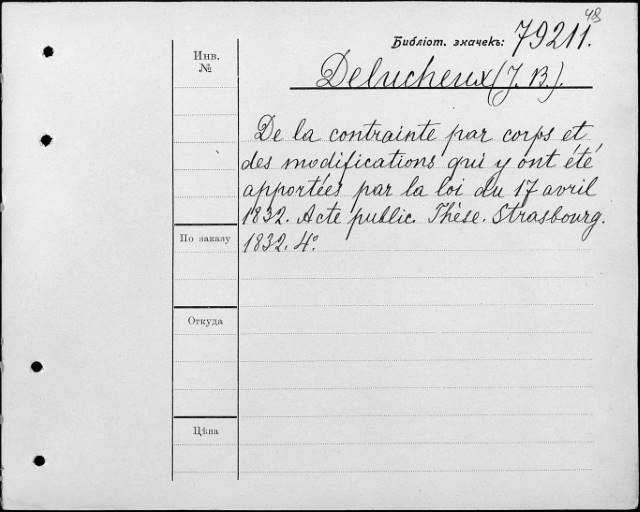 48
Библіот. значекъ: 79211.
Инв.
№
Delucheux (J. B.).
De la contrainte par corps et
des modifications qui y ont été
apportées par la loi du 17 avril
1832. Acte public. Thèse. Strasbourg.
По заказу
1832. 4°.
Откуда
Цѣна